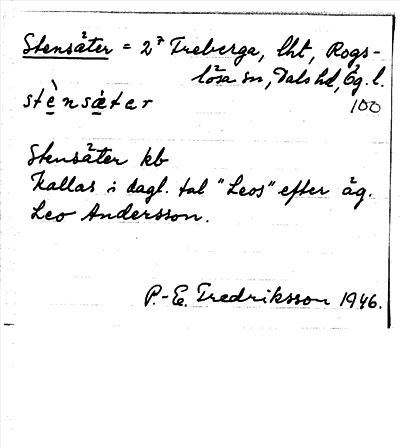 Stensäter = 2⁷ Treberga, lht, Rogs-
lösa sn, Dals hd, Ög. l.
stènsätar 100
Stensäter kb
Kallas i dagl. tal "Leos" efter äg.
Leo Andersson.
P.-E. Fredriksson 1946.